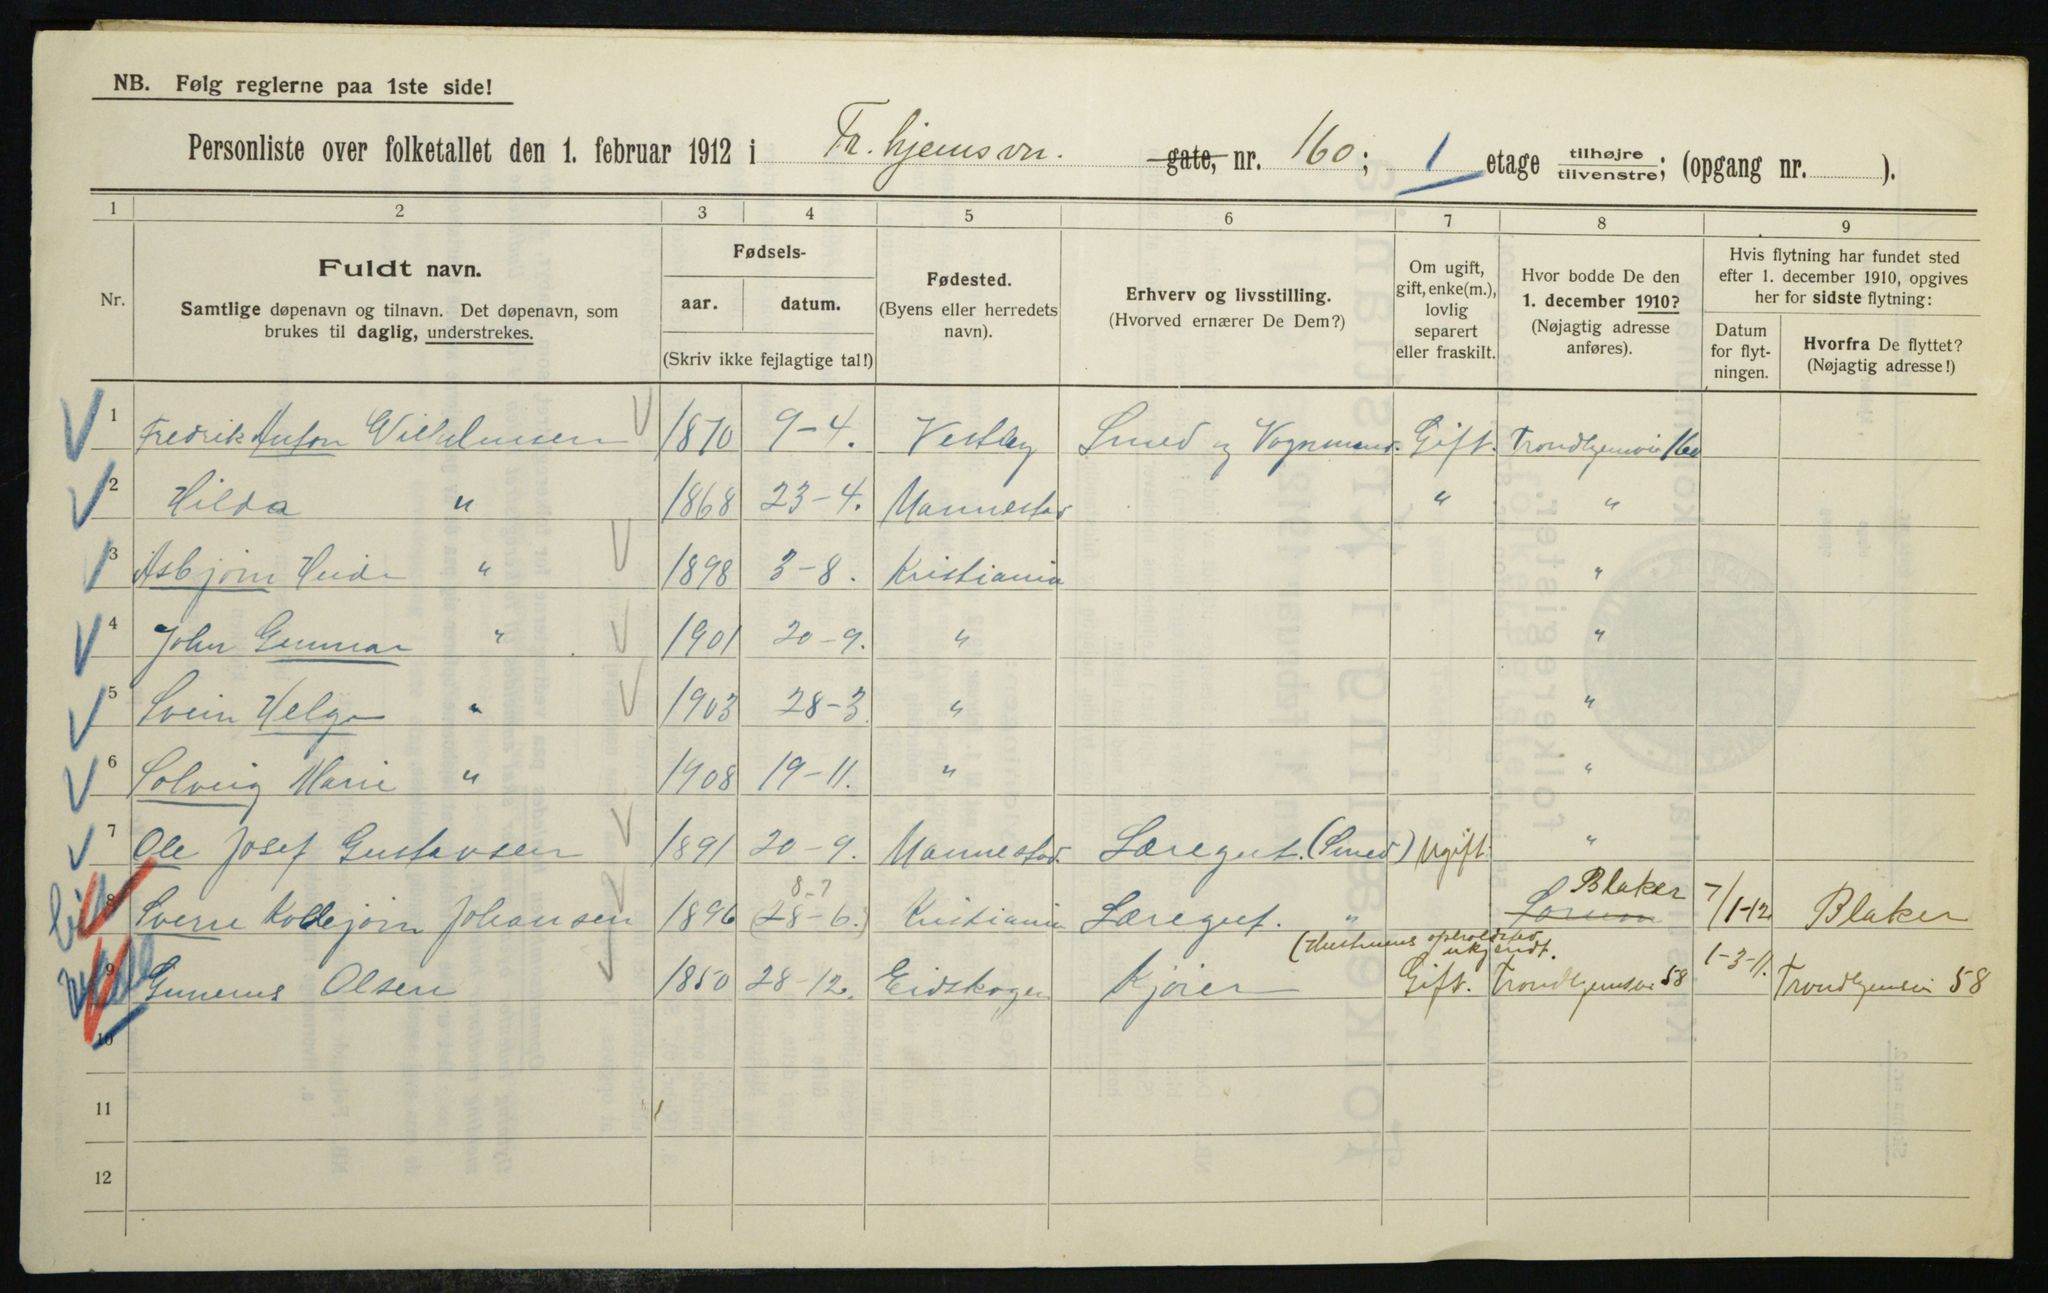 NB. Følg reglerne paa 1ste side!
Personliste over folketallet den 1. februar 1912 i Tr.hjemsvn. gate, nr. 160; 1 etage tilhøjre tilvenstre; (opgang nr. ).
1 2 3 4 5 6 7 8 9
Nr.
Fuldt navn.
Samtlige døpenavn og tilnavn. Det døpenavn, som
brukes til daglig, understrekes.
Fødsels-
aar. datum.
(Skriv ikke fejlagtige tal!)
Fødested.
(Byens eller herredets
navn).
Erhverv og livsstilling.
(Hvorved ernærer De Dem?)
Om ugift,
gift, enke(m.),
lovlig
separert
eller fraskilt.
Hvor bodde De den
1. december 1910?
(Nøjagtig adresse
anføres).
Hvis flytning har fundet sted
efter 1. december 1910, opgives
her for sidste flytning:
Datum
for flyt-
ningen.
Hvorfra De flyttet?
(Nøjagtig adresse!)
1 Fredrik Anton Wilhelmsen 1870 9-4. Vestby Smed og Vognmand. Gift. Trondhjemsvei 160
2 Hilda " 1868 23-4. Mannestad " "
3 Asbjørn " 1898 3-8. Kristiania "
4 John Gunnar " 1901 20-9. " "
5 Svein Helge " 1903 28-3 " "
6 Solveig Marie " 1908 19-11. " "
7 Ole Josef Gustavsen 1891 20-9. Mannestad. Læregut. (Smed) Ugift. "
8-7 Blaker
8 Sverre Johansen 1896 (28-6.) Kristiania Læregut. " Sørum 7/1-12 Blaker
(Hustruens opholdsted
ukjendt.
9 Gunerus Olsen 1850 28-12. Eidskogen Kjører Gift. Trondhjemsvei 58 1-3-11. Trondhjemsvei 58
10
11
12